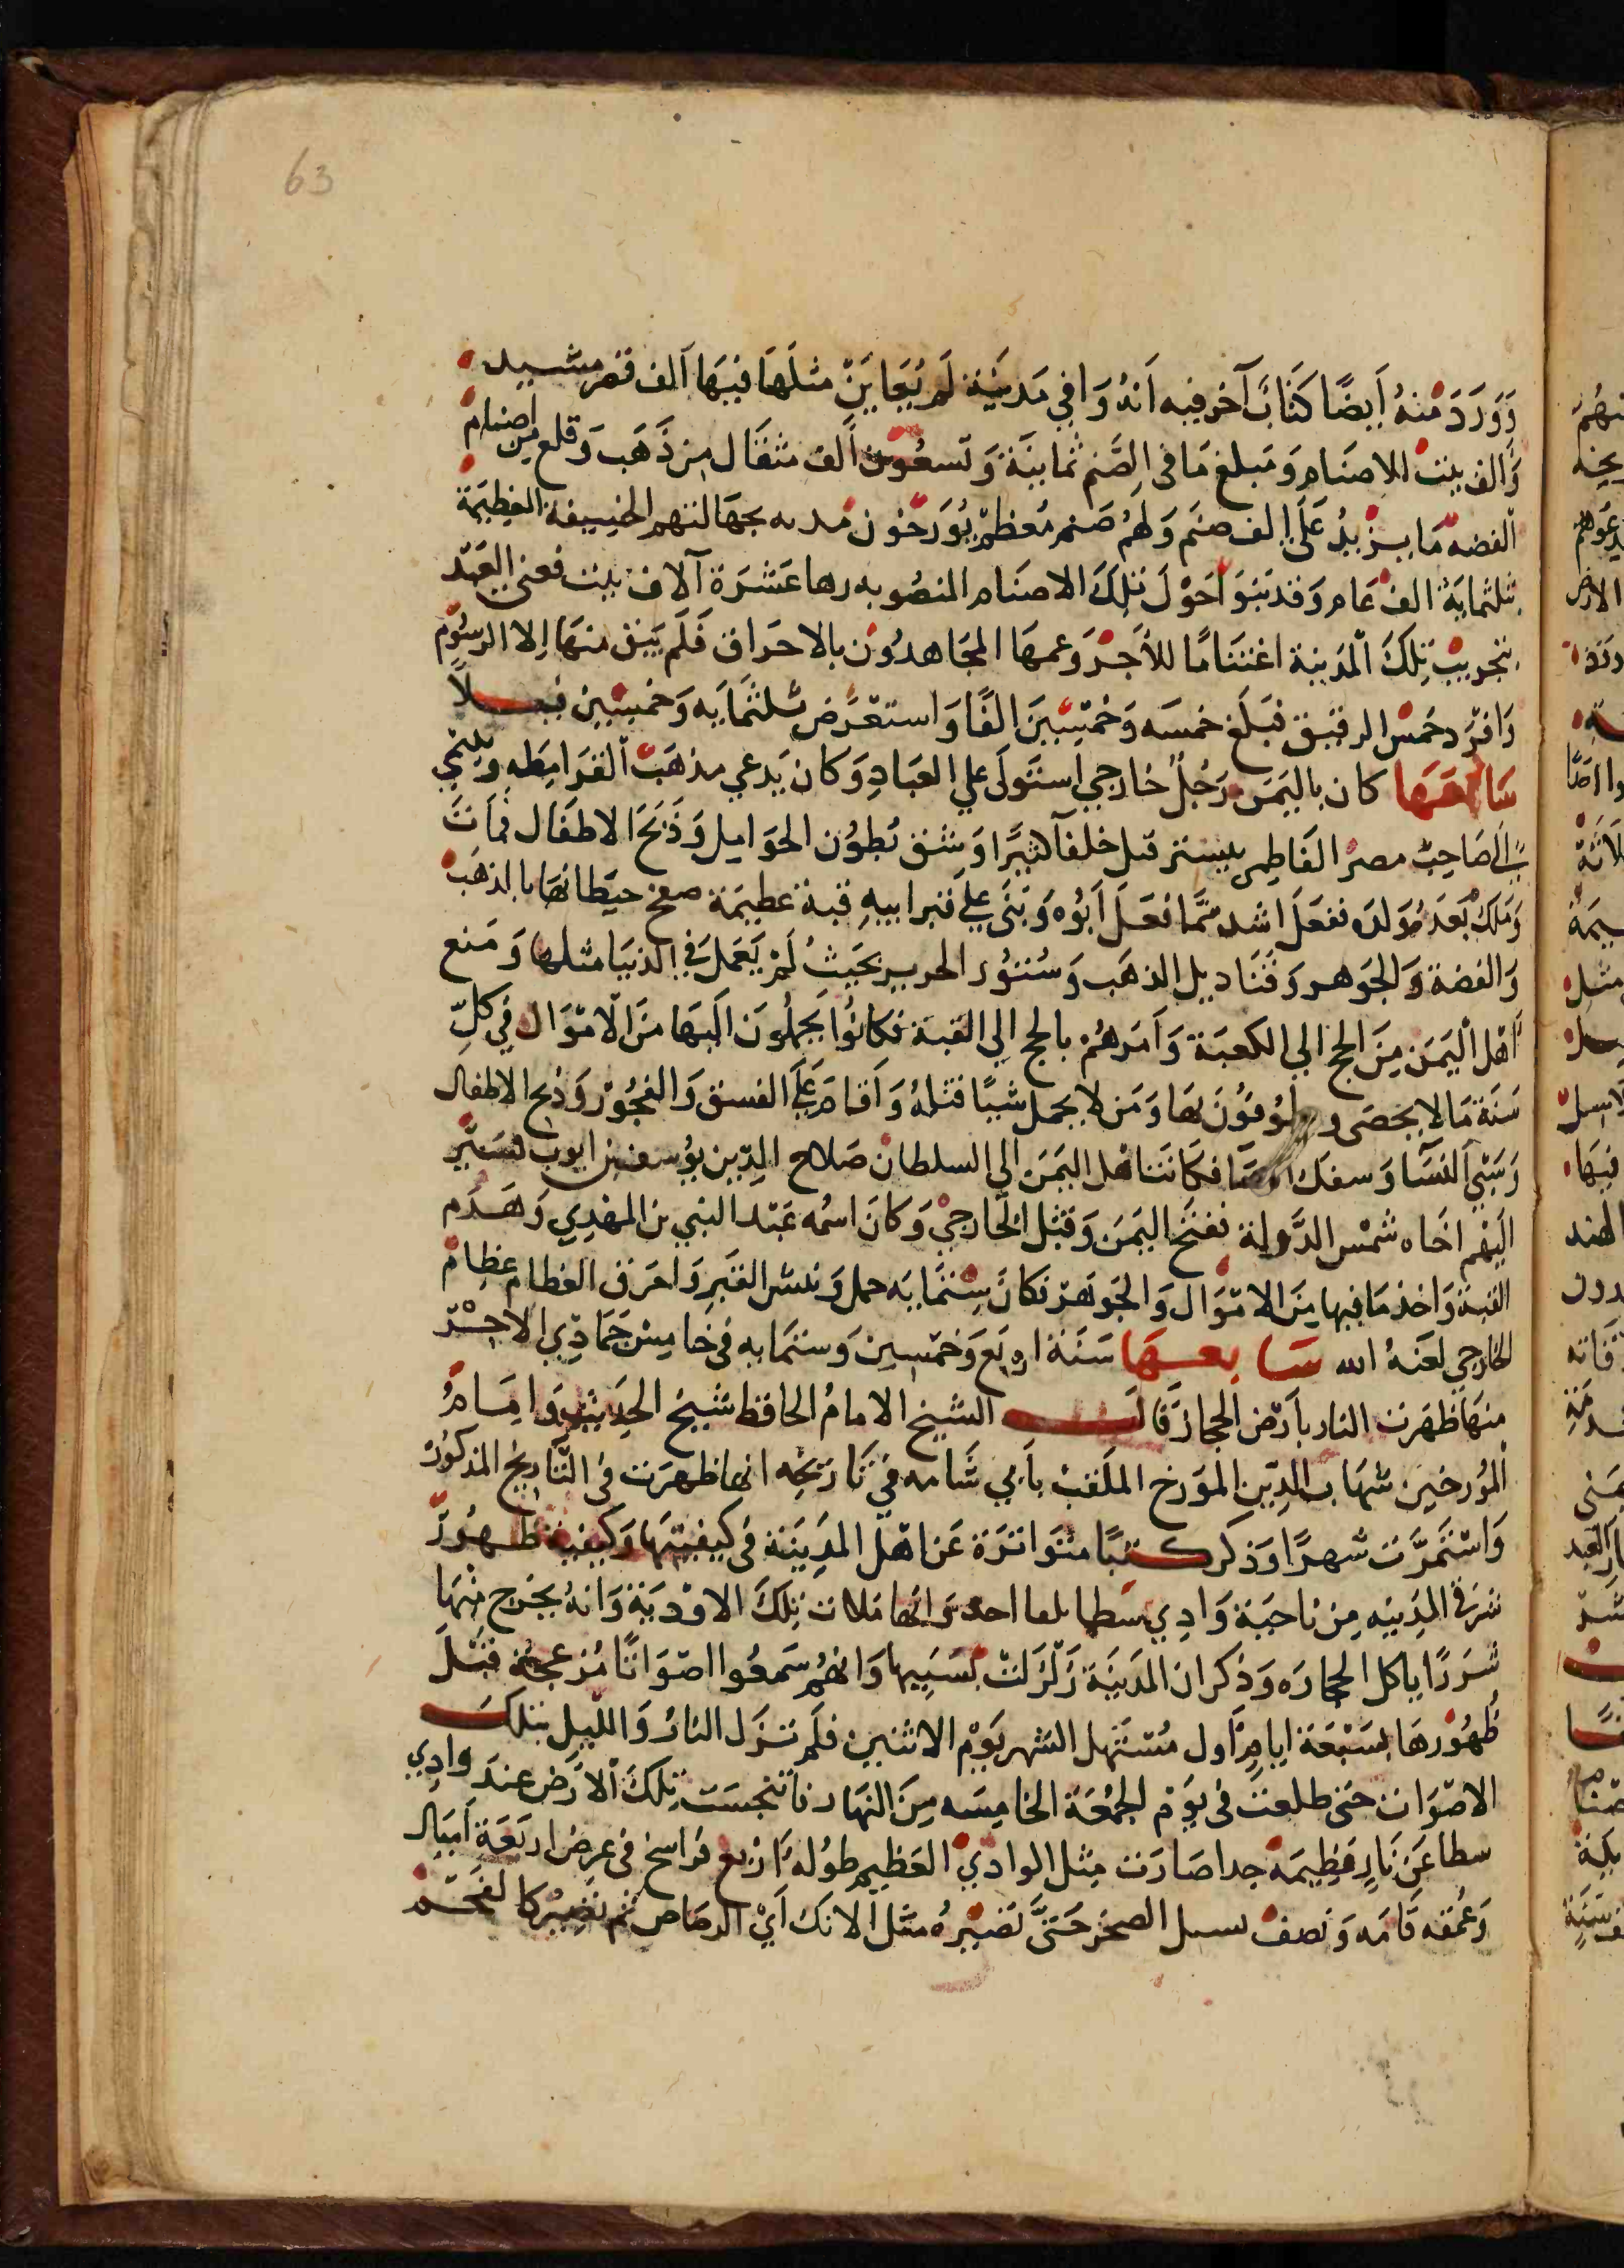 63
وَوَرَدَ مْنهُ أَيضًا كَتَابٌ آخر فيه اَنهُ وَافي مَدينَة لَم يُعَايَنْ مثلَهَا فيهَا آلف قصر مشيد
وَالف بيت للاصنَام وَمَبلغ مَا في الصَّنم ثمانيَة وَتسعُون اَلف مثقَال من ذَهَب وَقلع من اصنام
الفضه مَا يزيدُ عَلَى الف صنَم وَلهُم صَنم مُعظم يُورَخُون مدته بجهَالتهم الخيفة العَظيمَة
بثلثمايَة الف عَام وَقد بَنوا حَوْلَ تلكَ الاصنَام المنصُوبه رها عَشرَة آلاف بيت فعني العَبْد
بتخريب تلكَ المدَينة اغتنَامًا للأَجر وَعمهَا المجَاهدُون بالاحرَاق فَلَم يَبق منهَا اِلا الرسُوم
وَافرَد خمس الرقيق فبَلَغ خمسَه وَخمسِينَ الفًا وَاستعرَض ثلثمَايه وَخمسِين فيلاً
سَادسَهَا كان باليَمَن رَجُلٌ خَارجي استَولَى علي العبَادِ وَكان يَدعي مذهَب القرَامِطَه وَينتمي
إلَى صَاحب مصر الفَاطمي يستتر قتل خلقاً كثيرًا وَشق بُطوُن الحوَامِل وَذَبحَ الاطفَال فمَاتَ
وَمَلك بَعدَه وَلدَه ففعَلَ اشد ممَّا فعَلَ أبُوه وَبَنَى علي قبر ابيهِ قبة عظيمَة صفح حيطَانهَا بالذهَب
وَالفضة وَالجوَهر وَقَنَاديل الذهَب وَستُوُر الحرير بحَيثُ لَمْ يَعمَل في الدنيَا مثلها وَمَنع
أهْل الْيَمَن مِنَ الحج الي الكعبَة وَاَمَرهُمْ بالحج الي القبة فكانُوا يَحملُونَ اليهَا منَ الاموَال في كلّ
سَنَة مَا لا يحصَى و يطوفوُنَ بهَا وَمَن لا يحمل شَيًا قتلهُ وَأقَامَ عَلَى الفسق وَالفجُوْر وَذبح الاطفال
وَسَبْي النسَآ وَسفك الدمَآ فكَاتَبَت اهْل اليَمَن الي السلطَان صَلاح الدّين يوُسف بن ايوب فسَيّر
اليَهْم اخَاه شَمْس الدَّولة ففتحَ اليَمَن وَقتل الخَارجي وَكانَ اسمُه عَبْد النبي بن المهْدي وَهَدَم
القبة وَاخذ مَا فيها مِنَ الاموَال وَالجوَهر فكانَ ستمَايَه حمل وَنبش القَبر وَاحرَق العظام عظام
الخارجي لعَنهُ الله سَابعهَا سَنَة اربَع وَخمسِين وَستمَايه في خَامِس جمَادي الاخر
منهَا ظهَرت النَار باَرْض الحجاز قَالَ الشيخ الامامُ الحافظ شيخ الحديث وَامِامُ
المُورخين شهَاب الدِّين المؤرخ الملَقبْ بأبي شَامه في تَاريخه انها ظهرَت في التَّاريخ المذكُور
وَاسْتَمرَّت شهرًا وَذكر كتبًا متوَاترَة عَن اهْل المدينَة في كيفيتهَا وَكيفية ظهُورهَا
شرقي المدينِه مِن ناحيَة وَادي شطا تلقا احد وَانها مَلات تلكَ الاوْديَة وَانهُ يخرج منهَا
شَررًا ياكل الحجارَه وَذكر ان المَدينَة زَلزَلتْ بسَببهَا وَانهُم سَمعُوا اصوَاتًا مُزعجَة قبْلَ
ظهُوْرهَا بسَبْعَة ايام اَول مُستَهل الشهر يَوْم الاثنين فلَم تزل النهارُ وَالليل بتلك
الاصوَات حَتى طلعَت في يَوْم الجمُعَة الخامِسه مِنَ النهَار نا تنجست تلكَ الأرَض عندَ وادي
سطا عَن نَارٍ عَظيمَة جدا صَارَت مثل الوادي العَظيم طوُله اَربع فرَاسخ في عرض اربَعَة أميال
وَعمُقه قَامَه وَنصف يسيل الصخر حَتىَّ تَصيرُه مثل الانك اَيْ الرصَاص ثم تصيرُ كالفحم